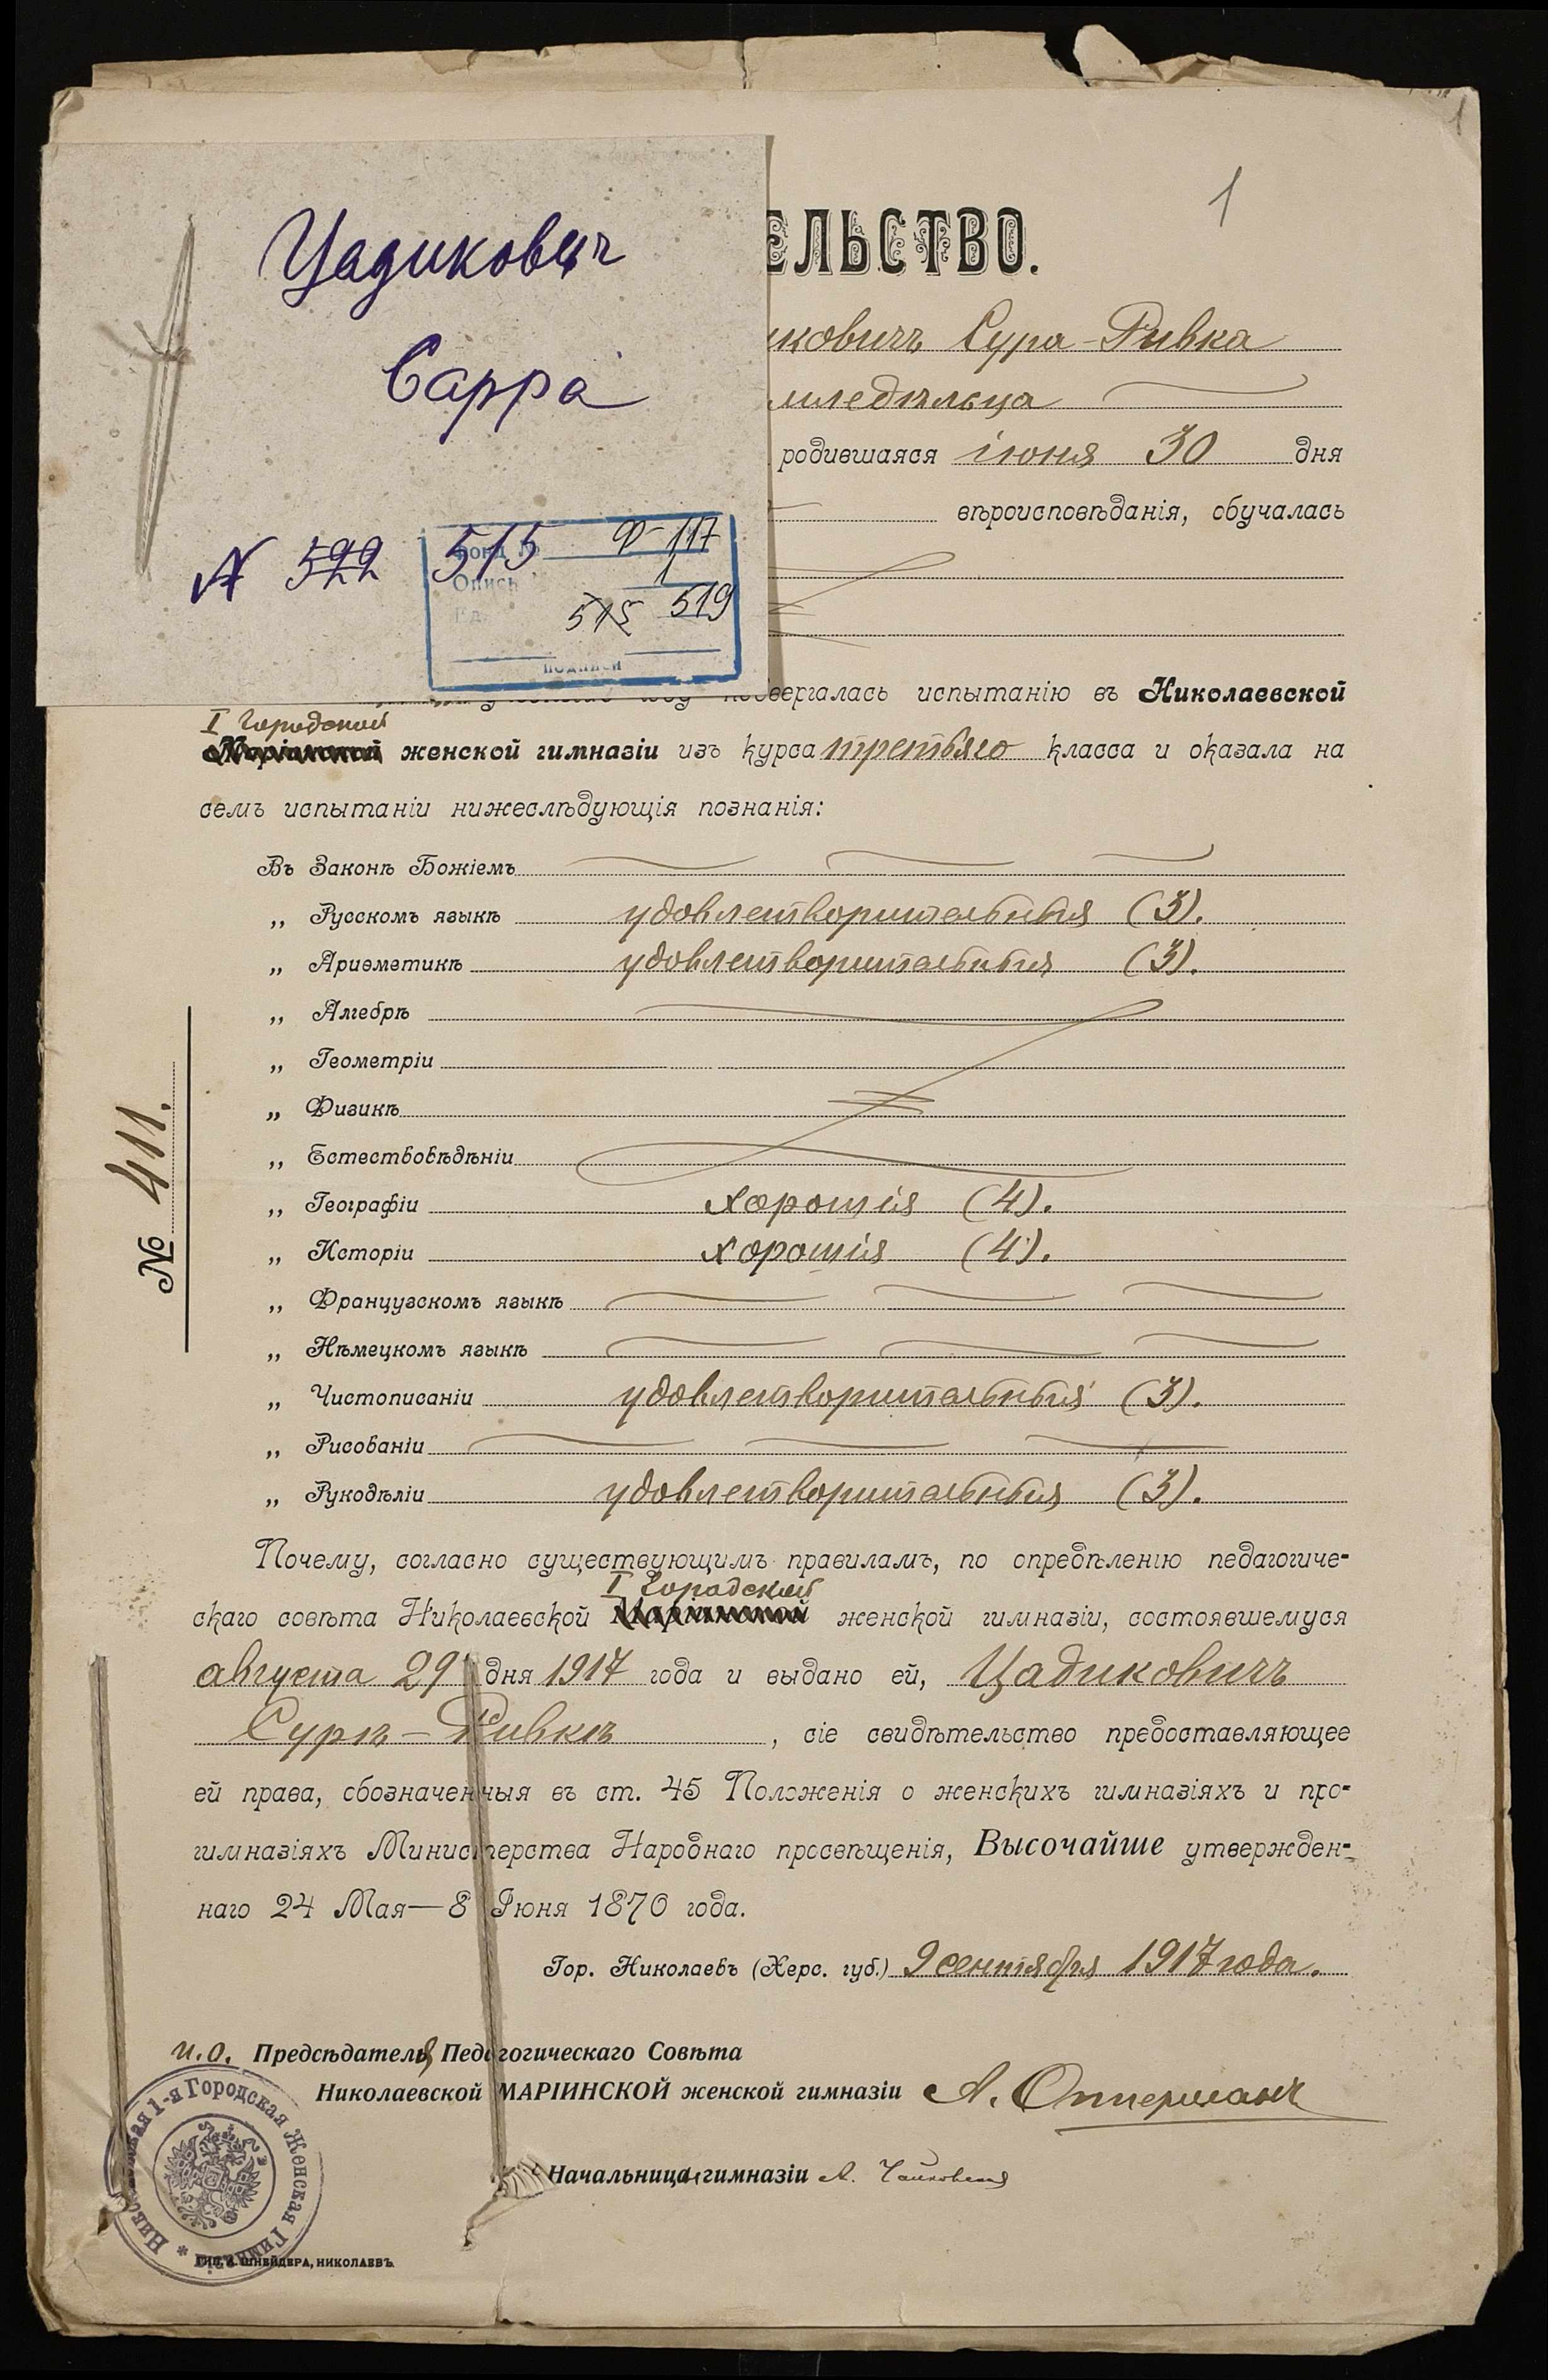 1
1
Цадикович
Сарра
N 522 515
Фонд № Ф-117
Опись 1
Ед. 515 519
подписи
ЕЛЬСТВО.
иковичъ Сура-Ривка
мледѣльца
родившаяся іюня 30 дня
вѣроисповѣданія, обучалась
подвергалась испытанію въ Николаевской
I Городской
Маріинской женской гимназіи изъ курса третьяго класса и оказала на
семъ испытаніи нижеслѣдующія познанія:
Въ Законѣ Божіемъ
„ Русскомъ языкѣ удовлетворительныя (3).
„ Ариѳметикѣ удовлетворительныя (3).
„ Алгебрѣ
„ Геометріи
„ Физикѣ
„ Естествовѣдѣніи
„ Географіи хорошія (4).
„ Исторіи хорошія (4).
„ Французскомъ языкѣ
„ Нѣмецкомъ языкѣ
„ Чистописаніи удовлетворительныя (3).
„ Рисованіи
„ Рукодѣліи удовлетворительныя (3).
№ 411.
Почему, согласно существующимъ правиламъ, по опредѣленію педагогиче-
I Городской
скаго совѣта Николаевской Маріинской женской гимназіи, состоявшемуся
августа 29 дня 1917 года и выдано ей, Цадиковичъ
Сурѣ-Ривкѣ, сіе свидѣтельство предоставляющее
ей права, обозначенныя въ ст. 45 Положенія о женскихъ гимназіяхъ и про-
гимназіяхъ Министерства Народнаго просвѣщенія, Высочайше утвержден-
наго 24 Мая—8 Іюня 1870 года.
Гор. Николаевъ (Херс. губ.) 9 сентября 1917 года.
И.о. Предсѣдателя Педагогическаго Совѣта
Николаевской МАРІИНСКОЙ женской гимназіи А. Оттерманъ
Начальница гимназіи А. Чайковская
Николаевская 1-я Городская Женская Гимназія *
ТИП. А. ШНЕЙДЕРА, НИКОЛАЕВЪ.